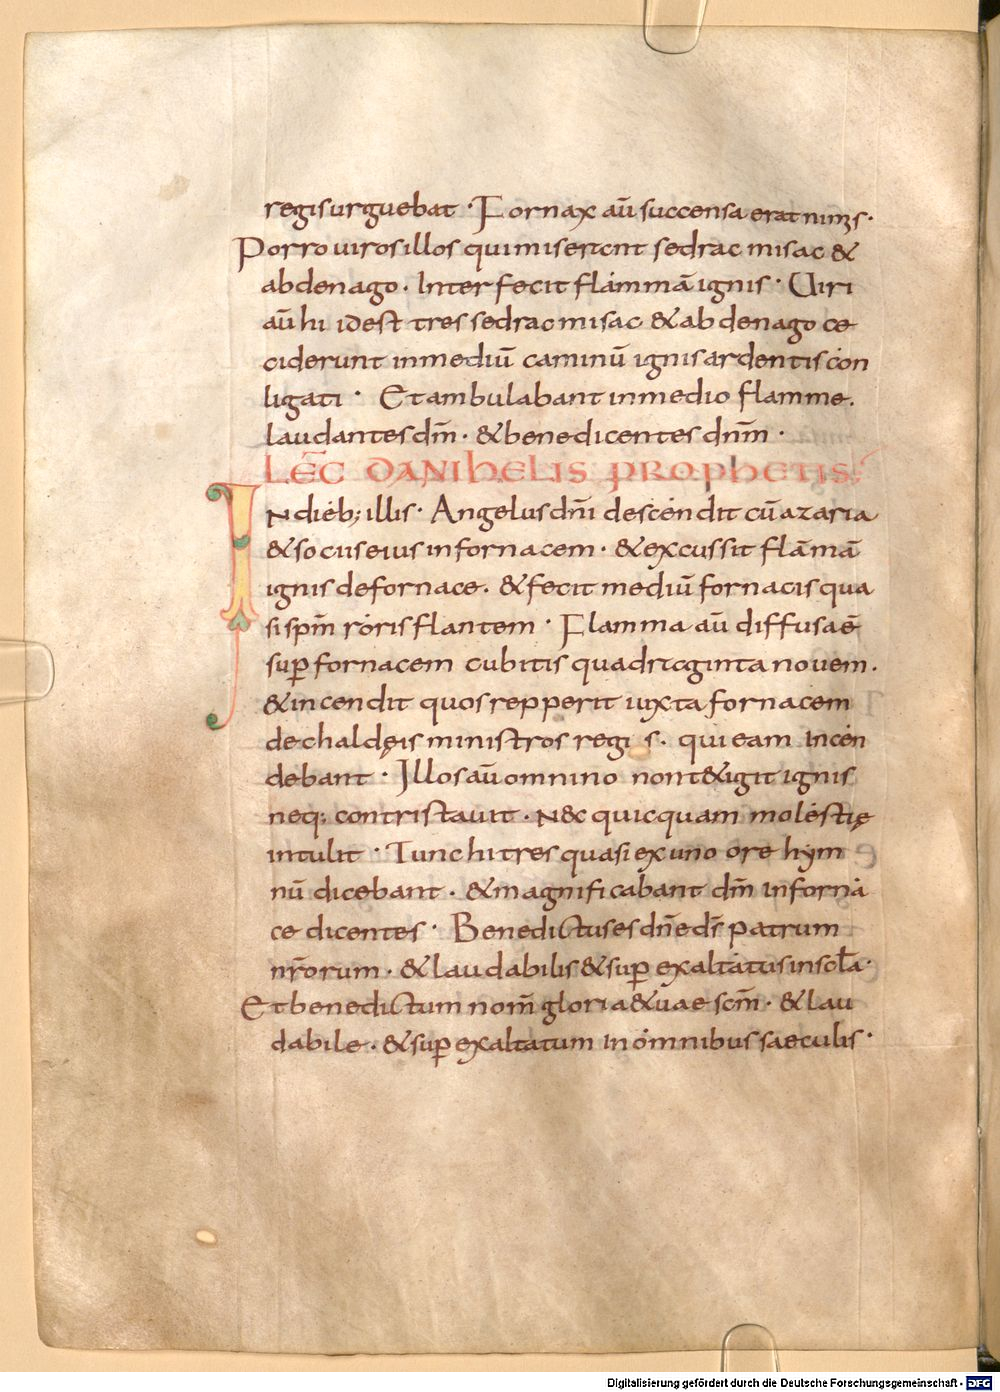 regis urguebat · Fornax aū succensa erat nimis ·
Porro viros illos qui miserent sedrac misac &
abdenago · Interfecit flāmmā ignis · Uiri
aū hi idest tres sedrac misac & abdenago ce
ciderunt in mediū caminū ignis ardentis con
ligati · Et ambulabant in medio flamme.
laudantes dm̄ · & benedicentes dnm̄ ·
LEC̄ DANIHELIS PROPHETIS;
IN dieb; illis · Angelus dn̄i descendit cū azaria
& sociis eius in fornacem · & excussit flāmā
ignis de fornace. & fecit mediū fornacis qua
si spm̄ roris flantem · Flamma aū diffusa ē
sup̄ fornacem cubitis quadraginta nouem.
& incendit quos repperit iuxta fornacem
de chaldęis ministros regis. qui eam incen
debant · Illos aū omnino non t&igit ignis
neq; contristauit · N&c quicquam molestię
intulit · Tunc hi tres quasi ex uno ore hym
nū dicebant · & magnificabant dm̄ in forna
ce dicentes · Benedictus es dn̄e ds̄ patrum
nr̄orum · & laudabilis & sup̄ exaltatus in scl̄a ·
Et benedictum nom̄ gloria & uae scm̄ · & lau
dabile · & sup̄ exaltatum in omnibus saeculis ·
Digitalisierung gefördert durch die Deutsche Forschungsgemeinschaft - DFG